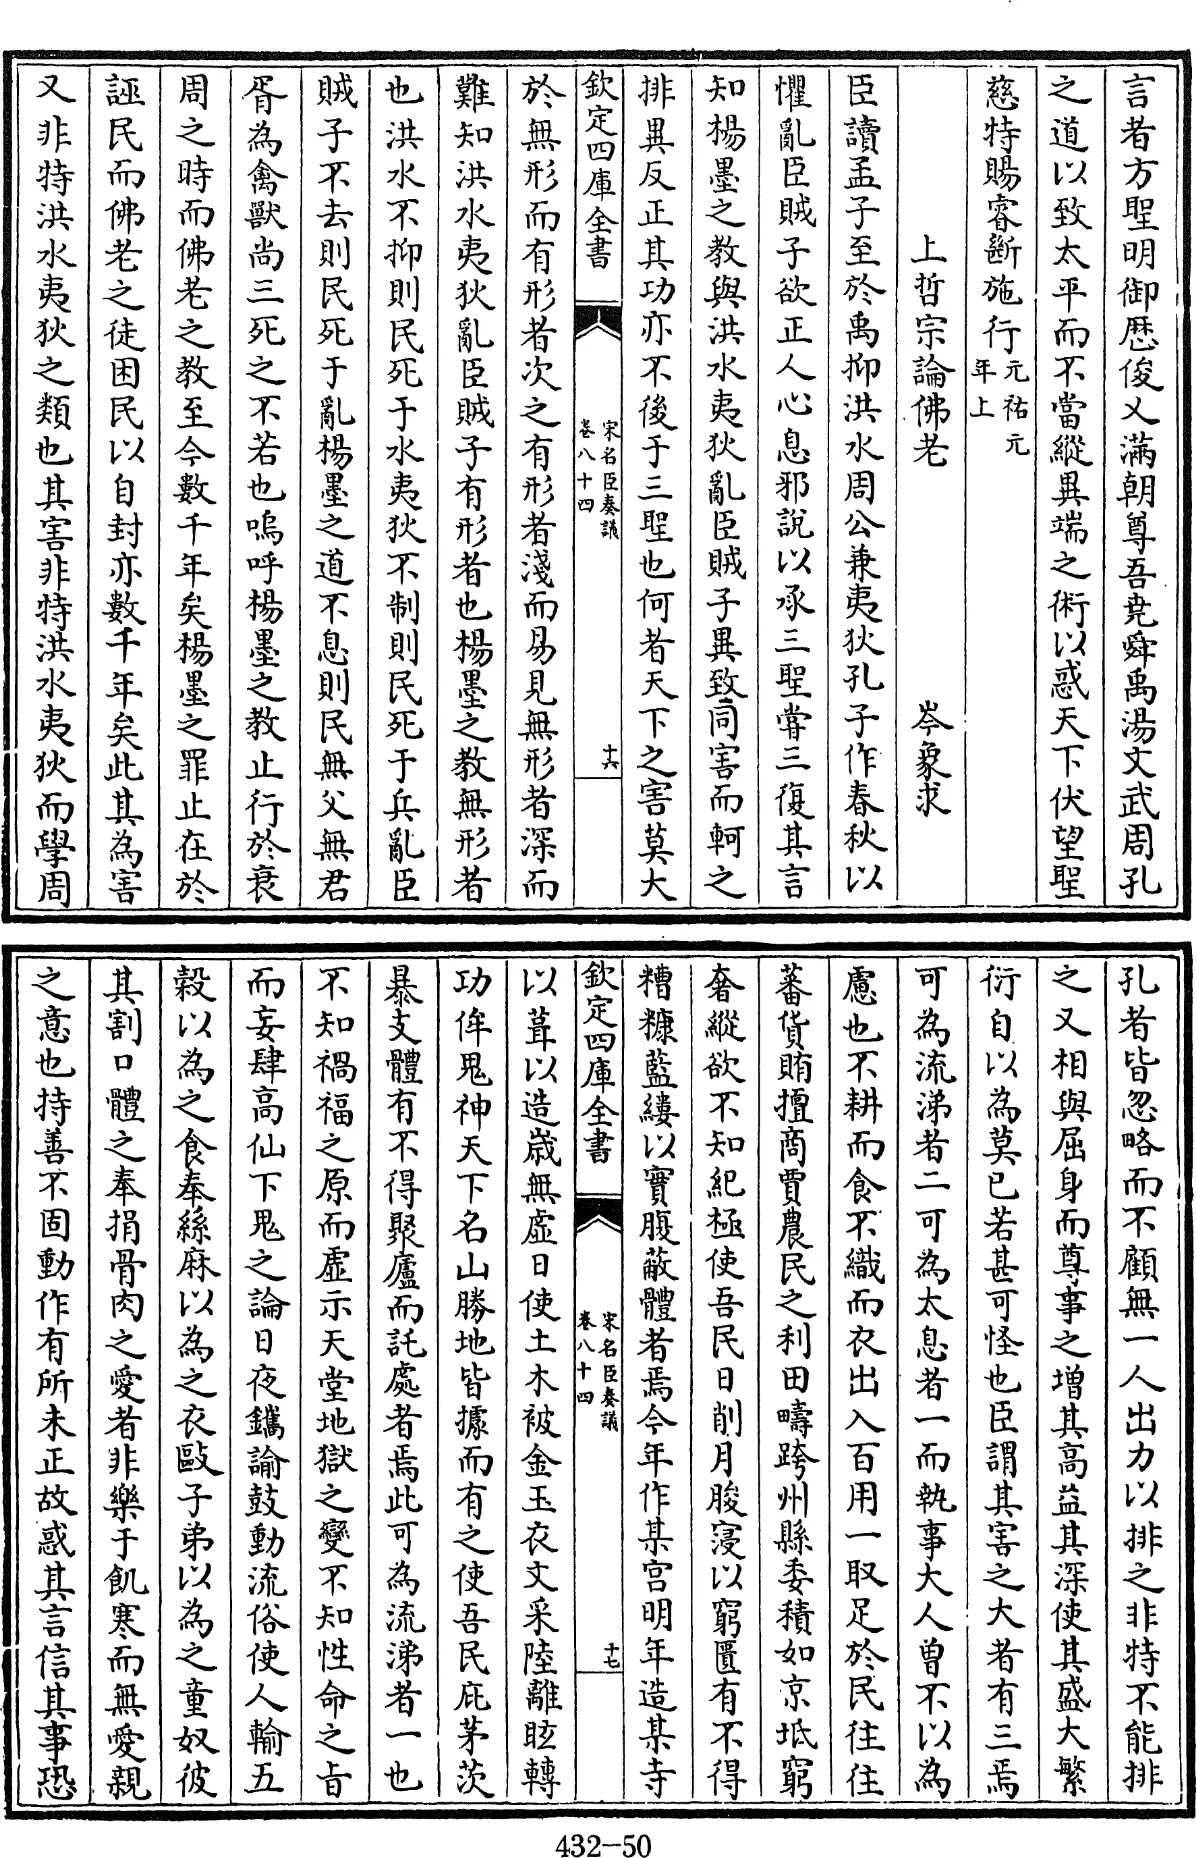 言者方聖明御厯俊乂滿朝尊吾堯舜禹湯文武周孔
之道以致太平而不當縱異端之術以惑天下伏望聖
慈特賜睿斷施行元祐元年上
上哲宗論佛老　岑象求
臣讀孟子至於禹抑洪水周公兼夷狄孔子作春秋以
懼亂臣賊子欲正人心息邪說以承三聖甞三復其言
知楊墨之教與洪水夷狄亂臣賊子異致同害而軻之
排異反正其功亦不後于三聖也何者天下之害莫大
欽定四庫全書　宋名臣奏議卷八十四　十六
於無形而有形者次之有形者淺而易見無形者深而
難知洪水夷狄亂臣賊子有形者也楊墨之教無形者
也洪水不抑則民死于水夷狄不制則民死于兵亂臣
賊子不去則民死于亂楊墨之道不息則民無父無君
胥為禽獸尚三死之不若也嗚呼楊墨之教止行於衰
周之時而佛老之教至今數千年矣楊墨之罪止在於
誣民而佛老之徒困民以自封亦數千年矣此其為害
又非特洪水夷狄之類也其害非特洪水夷狄而學周
孔者皆忽略而不顧無一人出力以排之非特不能排
之又相與屈身而尊事之增其高益其深使其盛大繁
衍自以為莫已若甚可怪也臣謂其害之大者有三焉
可為流涕者二可為太息者一而執事大人曾不以為
慮也不耕而食不織而衣出入百用一取足於民往往
蕃貨賄擅商賈農民之利田疇跨州縣委積如京坻窮
奢縱欲不知紀極使吾民日削月朘寖以窮匱有不得
糟糠藍縷以實腹蔽體者焉今年作某宮明年造某寺
欽定四庫全書　宋名臣奏議卷八十四　十七
以葺以造歲無虛日使土木被金玉衣文采陸離眩轉
功侔鬼神天下名山勝地皆據而有之使吾民庇茅茨
暴支體有不得聚廬而託處者焉此可為流涕者一也
不知禍福之原而虛示天堂地獄之變不知性命之㫖
而妄肆高仙下鬼之論日夜鐫諭鼓動流俗使人輸五
穀以為之食奉絲麻以為之衣敺子弟以為之童奴彼
其割口體之奉捐骨肉之愛者非樂于飢寒而無愛親
之意也持善不固動作有所未正故惑其言信其事恐
432-50